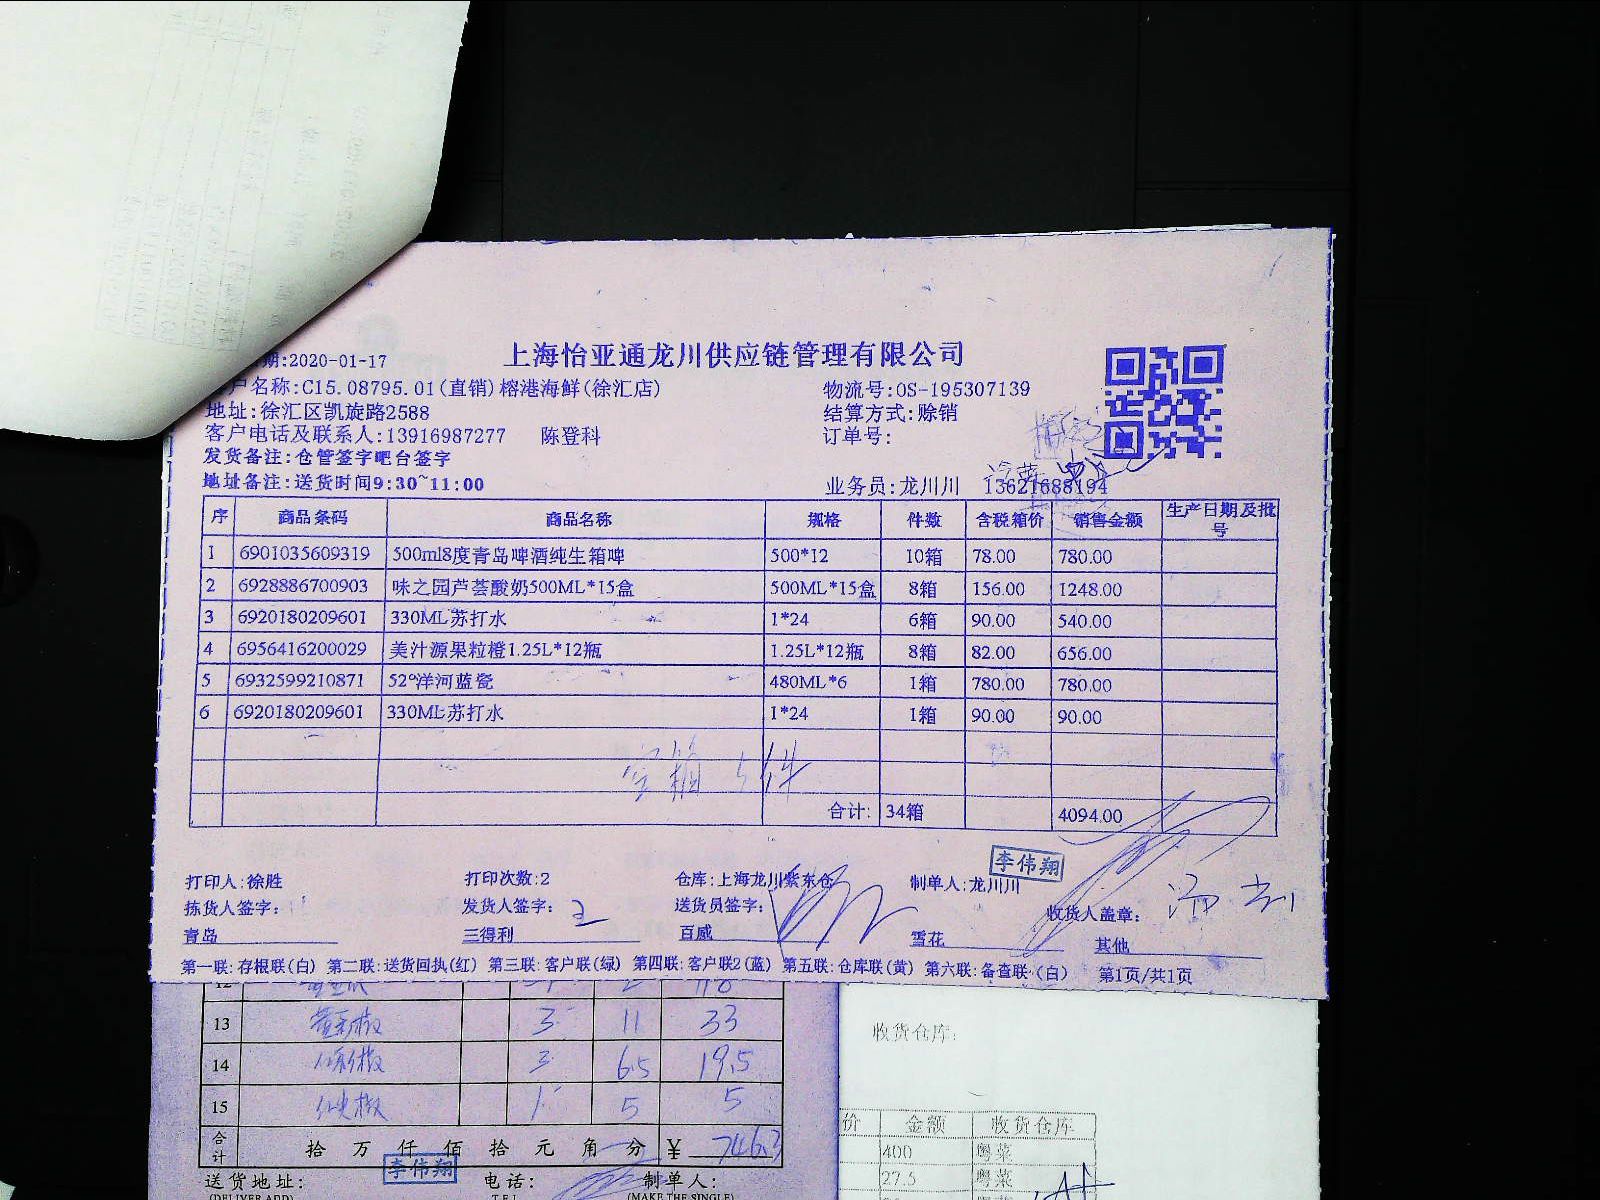 期:2020-01-17
上海怡亚通龙川供应链管理有限公司
户名称:C15.08795.01(直销)榕港海鲜(徐汇店)
物流号:OS-195307139
地址:徐汇区凯旋路2588
结算方式:赊销
客户电话及联系人:13916987277 陈登科
订单号:
发货备注:仓管签字吧台签字
地址备注:送货时间9:30~11:00
业务员:龙川川 13621688194
序 商品条码 商品名称 规格 件数 含税箱价 销售金额 生产日期及批号
1 6901035609319 500ml8度青岛啤酒纯生箱啤 500*12 10箱 78.00 780.00
2 6928886700903 味之园芦荟酸奶500ML*15盒 500ML*15盒 8箱 156.00 1248.00
3 6920180209601 330ML苏打水 1*24 6箱 90.00 540.00
4 6956416200029 美汁源果粒橙1.25L*12瓶 1.25L*12瓶 8箱 82.00 656.00
5 6932599210871 52°洋河蓝瓷 480ML*6 1箱 780.00 780.00
6 6920180209601 330ML苏打水 1*24 1箱 90.00 90.00
空箱 5件
合计: 34箱 4094.00
李伟翔
打印人:徐胜 打印次数:2 仓库:上海龙川紫东仓 制单人:龙川川
拣货人签字: 发货人签字: 送货员签字: 收货人盖章:
青岛 三得利 百威 雪花 其他
第一联:存根联(白) 第二联:送货回执(红) 第三联:客户联(绿) 第四联:客户联2(蓝) 第五联:仓库联(黄) 第六联:备查联(白) 第1页/共1页
13 3 11 33
14 3 6.5 19.5
15 1 5 5
合计 拾 万 仟 佰 拾 元 角 分 ¥ 746.3
李伟翔
送货地址: 电话: 制单人:
(DELIVER ADD) TEL (MAKE THE SINGLE)
收货仓库:
价 金额 收货仓库
400 粤菜
27.5 粤菜